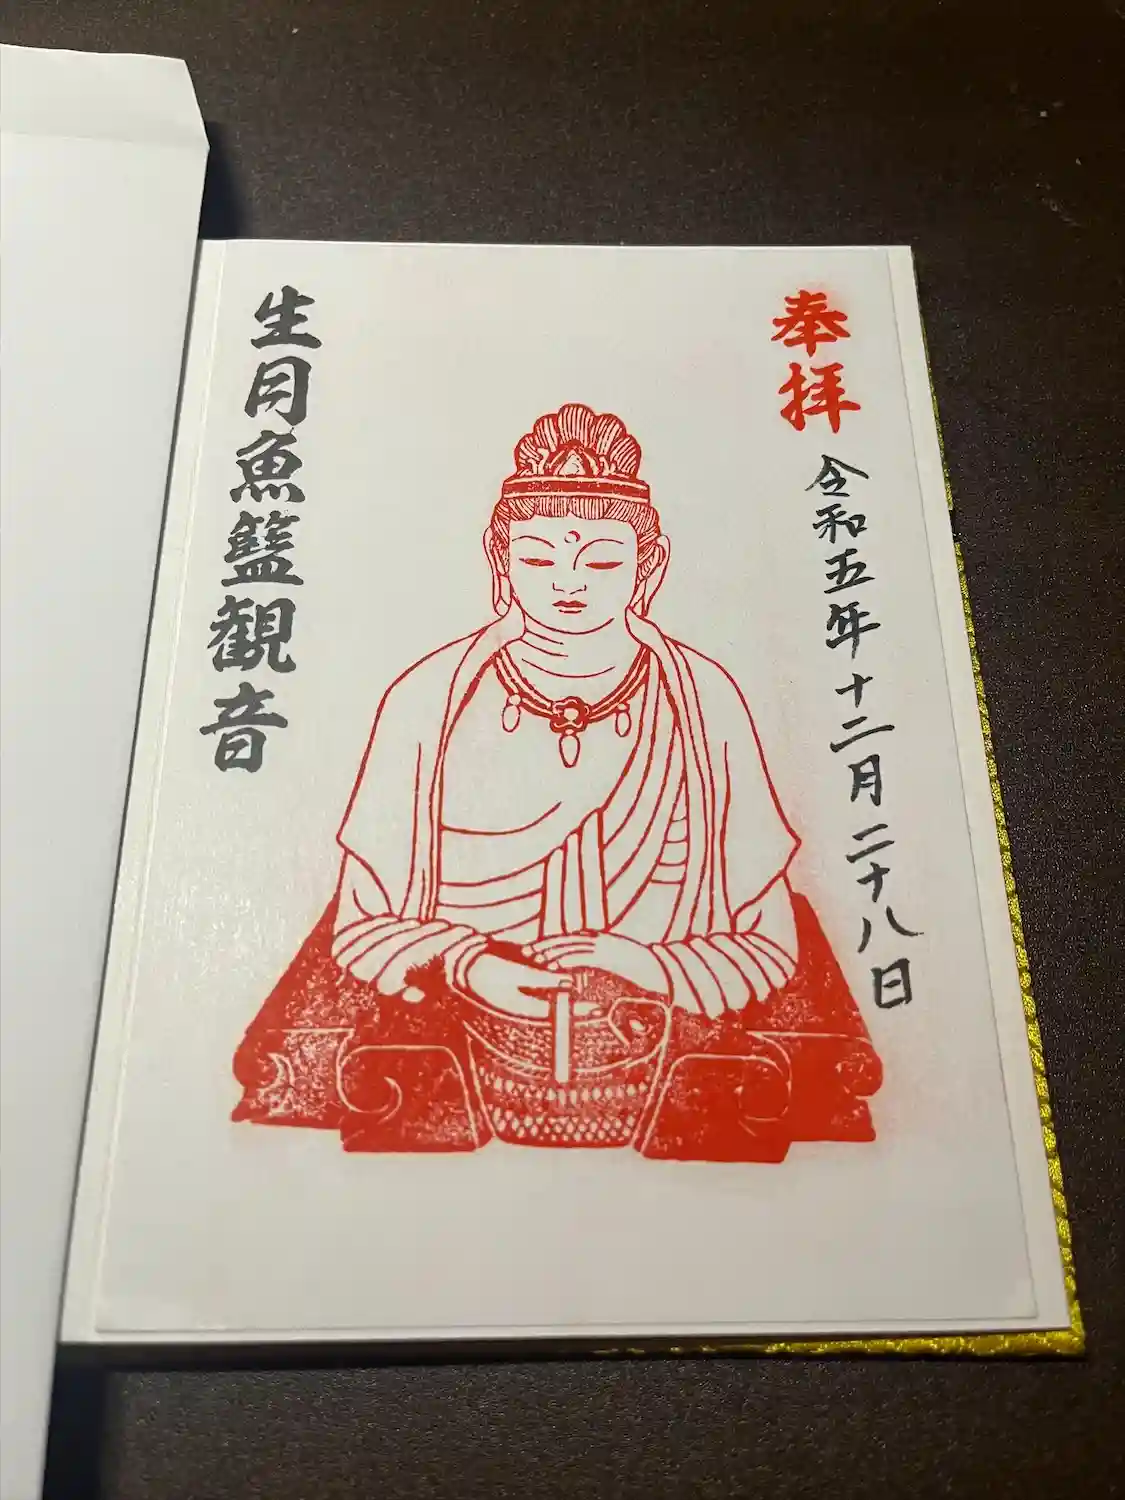 奉拝
令和五年十二月二十八日
生月魚籃観音